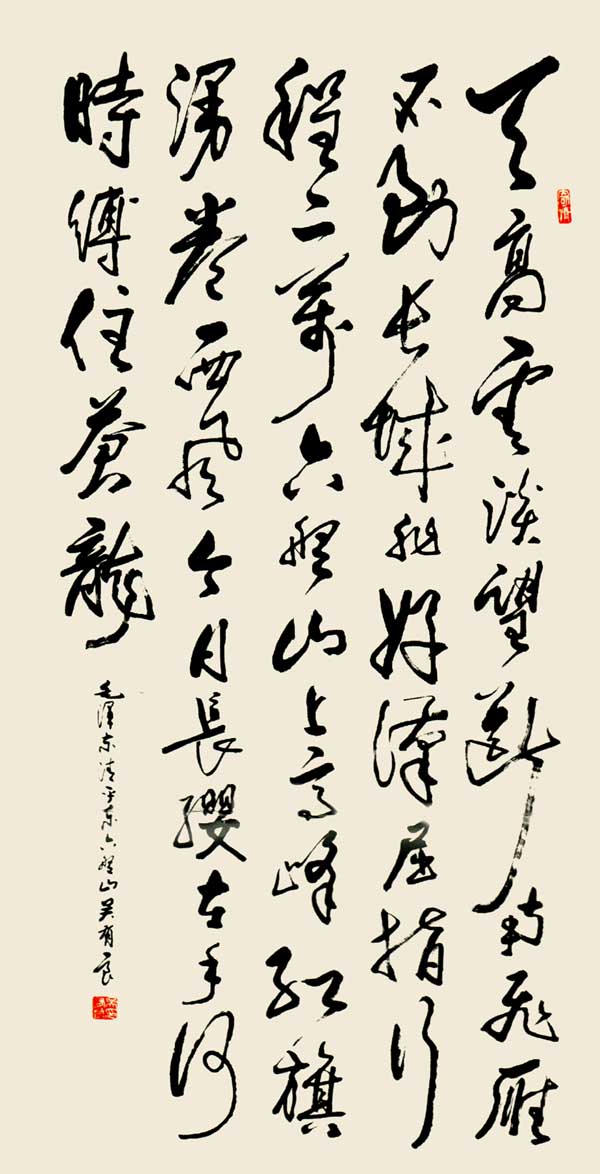 天高雲淡望斷南飛雁
不到长城非好漢屈指行
程二萬六盤山上高峰紅旗
漫卷西風今日長纓在手何
時縛住蒼龍
毛澤東清平樂六盤山吴有良